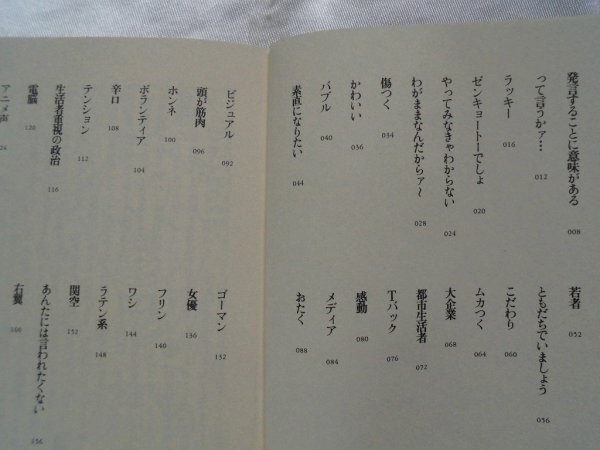 発言することに意味がある 008
って言うかァ… 012
ラッキー 016
ゼンキョートーでしょ 020
やってみなきゃわからない 024
わがままなんだからァ〜 028
傷つく 034
かわいい 036
バブル 040
素直になりたい 044
若者 052
ともだちでいましょう 056
こだわり 060
ムカつく 064
大企業 068
都市生活者 072
Tバック 076
感動 080
メディア 084
おたく 088
ビジュアル 092
頭が筋肉 096
ホンネ 100
ボランティア 104
辛口 108
テンション 112
生活者重視の政治 116
電脳 120
アニメ声
ゴーマン 132
女優 136
フリン 140
ワシ 144
ラテン系 148
関空 152
あんたには言われたくない 156
右翼